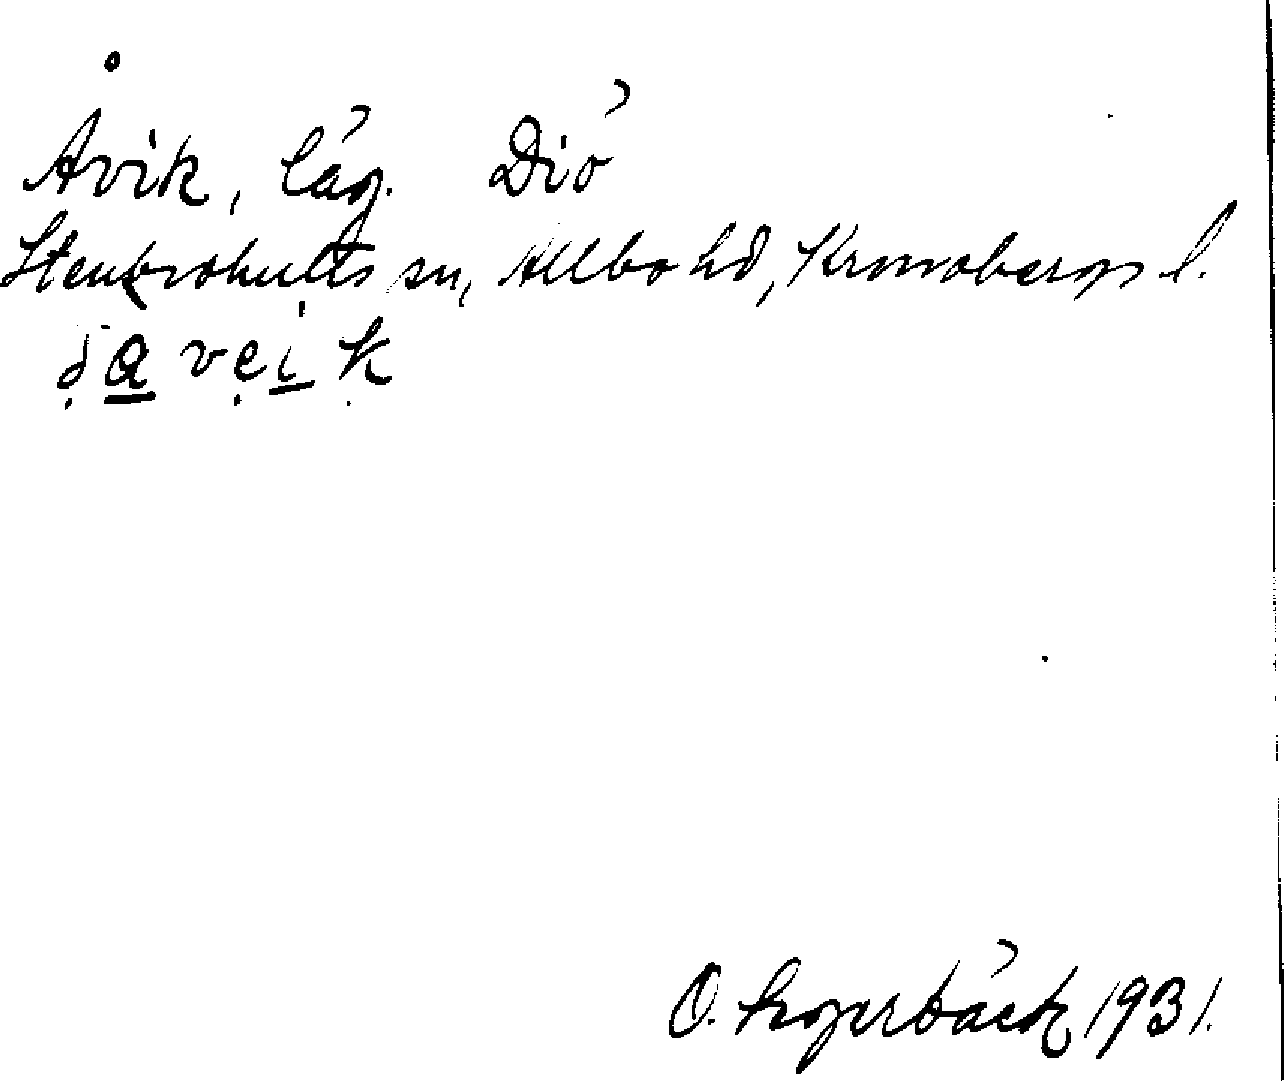 Åvik, läg. Diö
Stenbrohults sn, Allbo hd, Kronobergs l.
å̤a̲vẹi̲k
O. Lagerbäck 1931.